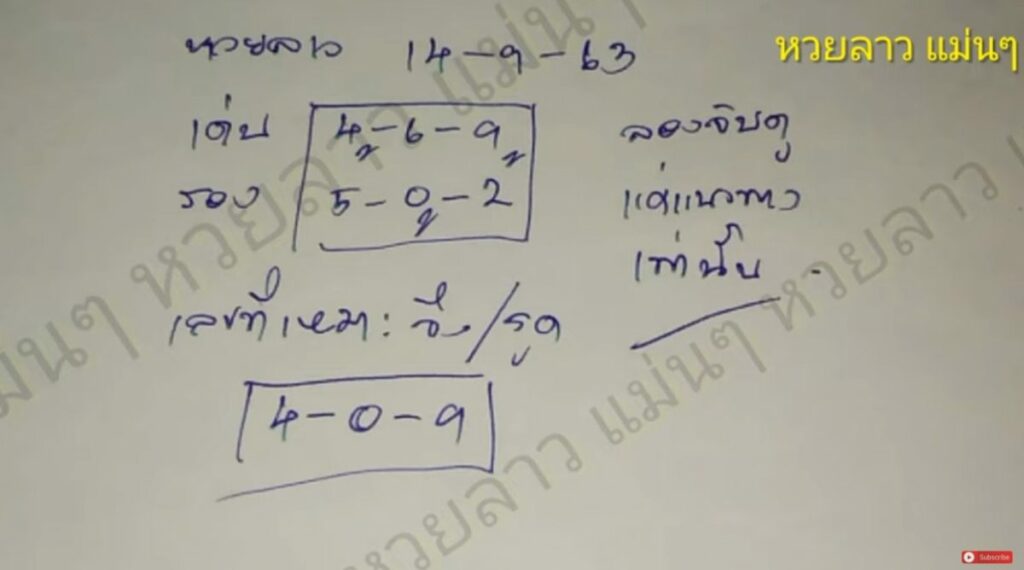 หวยลาว 14-9-63
หวยลาว แม่นๆ
เด่น 4-6-9
รอง 5-0-2
ลองจับดู
แค่แนวทาง
เท่านั้น
เลขที่เหมาะ: วิ่ง/รูด
4-0-9
หวยลาว แม่นๆ หวยลาว
แม่นๆ หวยลาว แม่นๆ
หวยลาว แม่นๆ หวยลาว
Subscribe